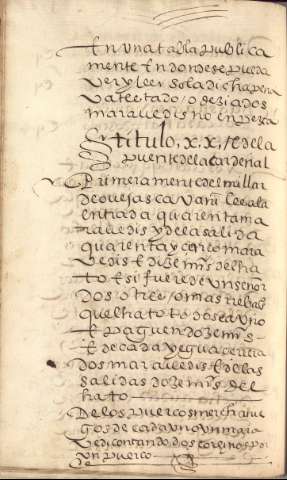 En una tabla publica
mente En donde se pueda
ver y leer so la dicha pena
mara uedis
Titulo, x.x, de la
puente del cardenal
Primeramente del millar
de ovejas cavañil de la
entrada quarenta ma
ravedis y de la salida
quarenta y cinco mara
vedis E doze mrs del ha
to E si fuere de un señor
dos o tres o mas rebaños
quel hato todo sea uno
E paguen doze mrs
E de cada yegua
dos maravedis E de las
salidas doze mrs del
hato
De los puercos
gos de cada uno un mara
vedi contando dos por
un puerco